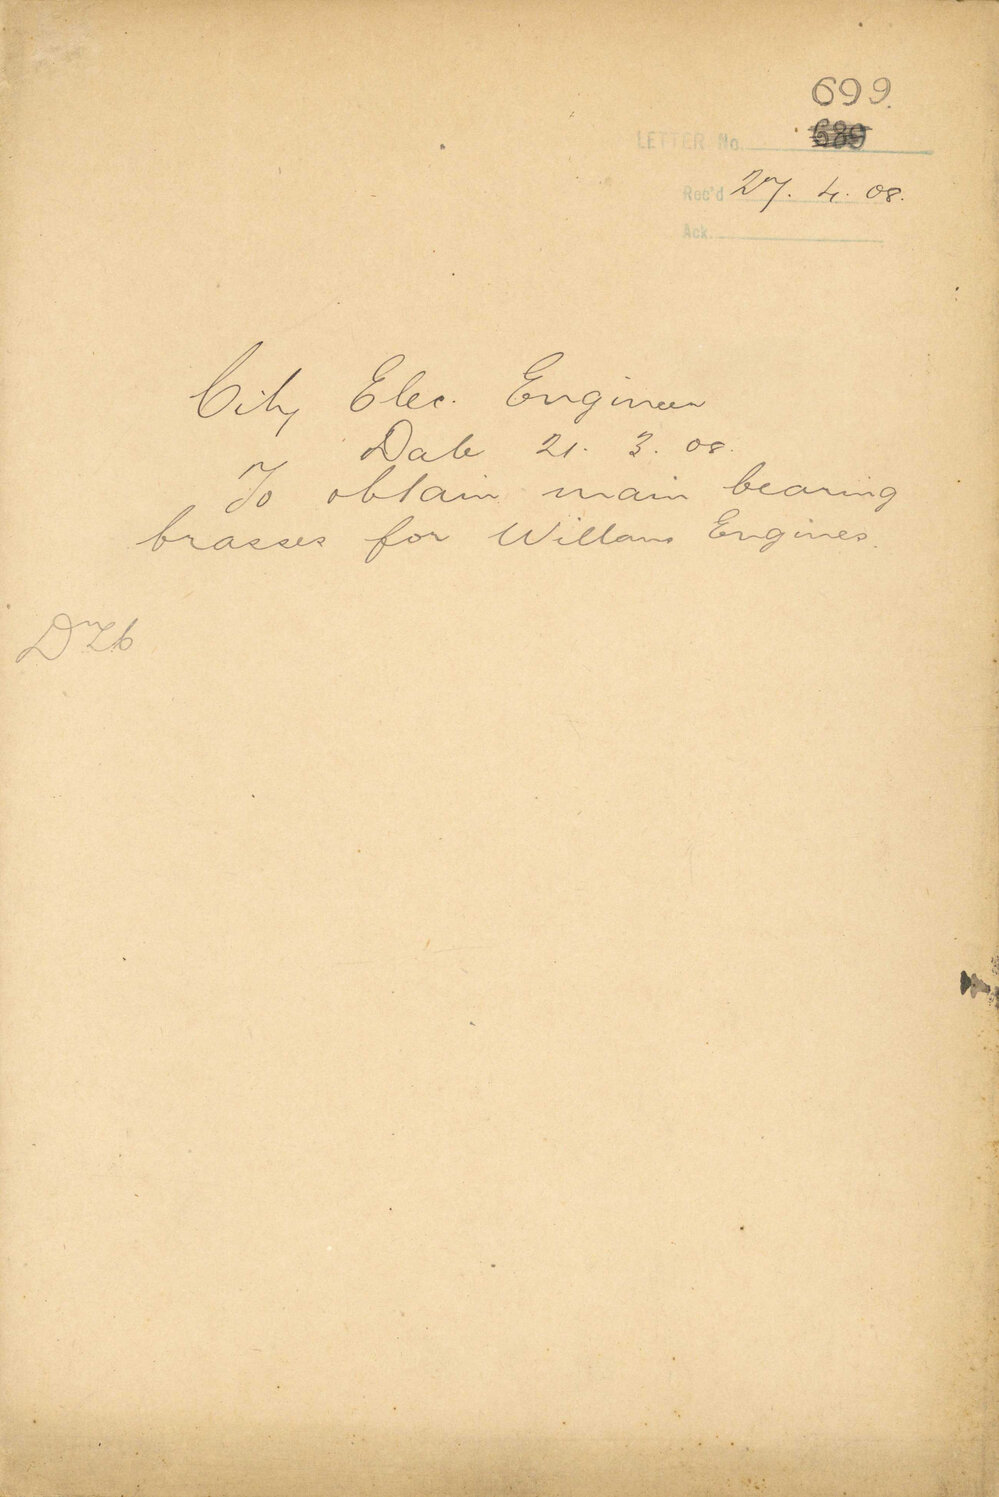 699.
LETTER No. 689
Rec'd 27. 4. 08.
Ack.
City Elec. Engineer
Date 21. 3. 08.
To obtain main bearing
brasses for Willans Engines.